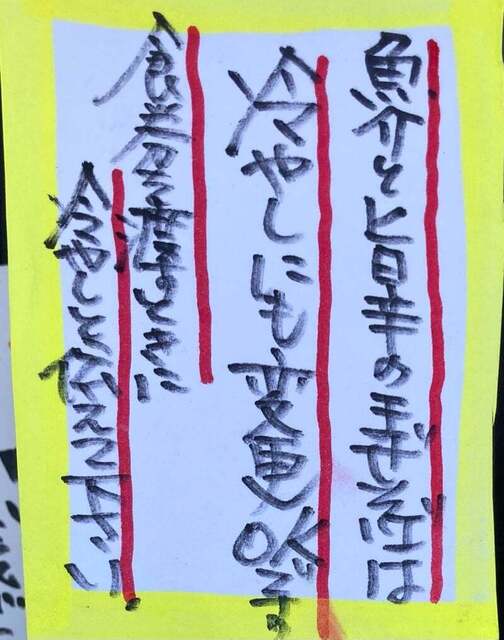 魚介と旨辛のまぜそばは
冷やしにも変更OKです。
食券を渡すときに
冷やしと伝えて下さい